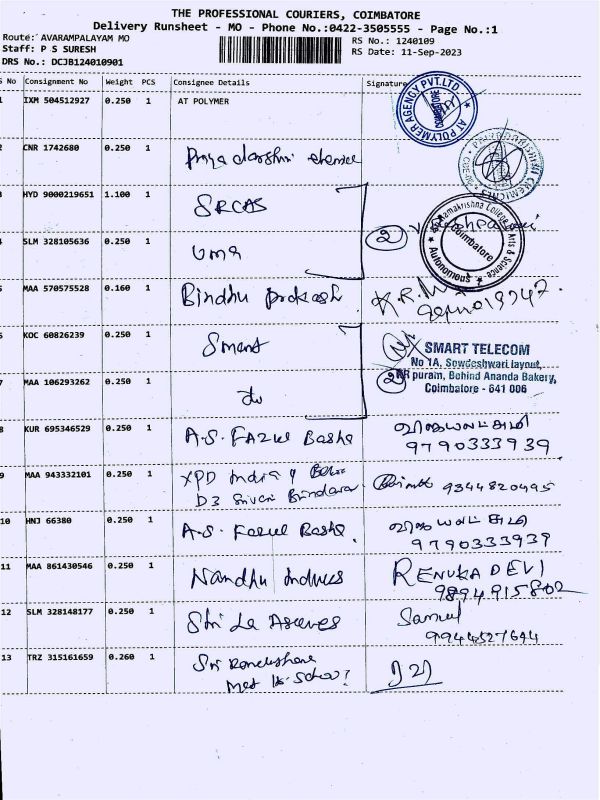 THE PROFESSIONAL COURIERS, COIMBATORE
Delivery Runsheet - MO - Phone No.:0422-3505555 - Page No.:1
Route: AVARAMPALAYAM MO
RS No.: 1240109
Staff: P S SURESH
RS Date: 11-Sep-2023
DRS No.: DCJB124010901
S No Consignment No Weight PCS Consignee Details Signature
1 IXM 504512927 0.250 1 AT POLYMER
AT POLYMER AGENCY PVT.LTD
COIMBATORE
2 CNR 1742680 0.250 1 Priya darshni
3 HYD 9000219651 1.100 1 SRCAS
Ramakrishna College of Arts & Science
Coimbatore
Autonomous
4 SLM 328105636 0.250 1 Uma
2
5 MAA 570575528 0.160 1 Bindhu Prakash
6 KOC 60826239 0.250 1 Smart
SMART TELECOM
No 1A, Sowdeshwari layout,
KR puram, Behind Ananda Bakery,
Coimbatore - 641 006
7 MAA 106293262 0.250 1
2
8 KUR 695346529 0.250 1 A.S. FAZUL Basha விஜயலட்சுமி
9790333939
9 MAA 943332101 0.250 1 XPD India
D3 9344820495
10 HNJ 66380 0.250 1 A.S. Fazul Basha விஜயலட்சுமி
9790333939
11 MAA 861430546 0.250 1 Nandhu RENUKA DEVI
9894915802
12 SLM 328148177 0.250 1 Samuel
9944527644
13 TRZ 315161659 0.260 1 Sri